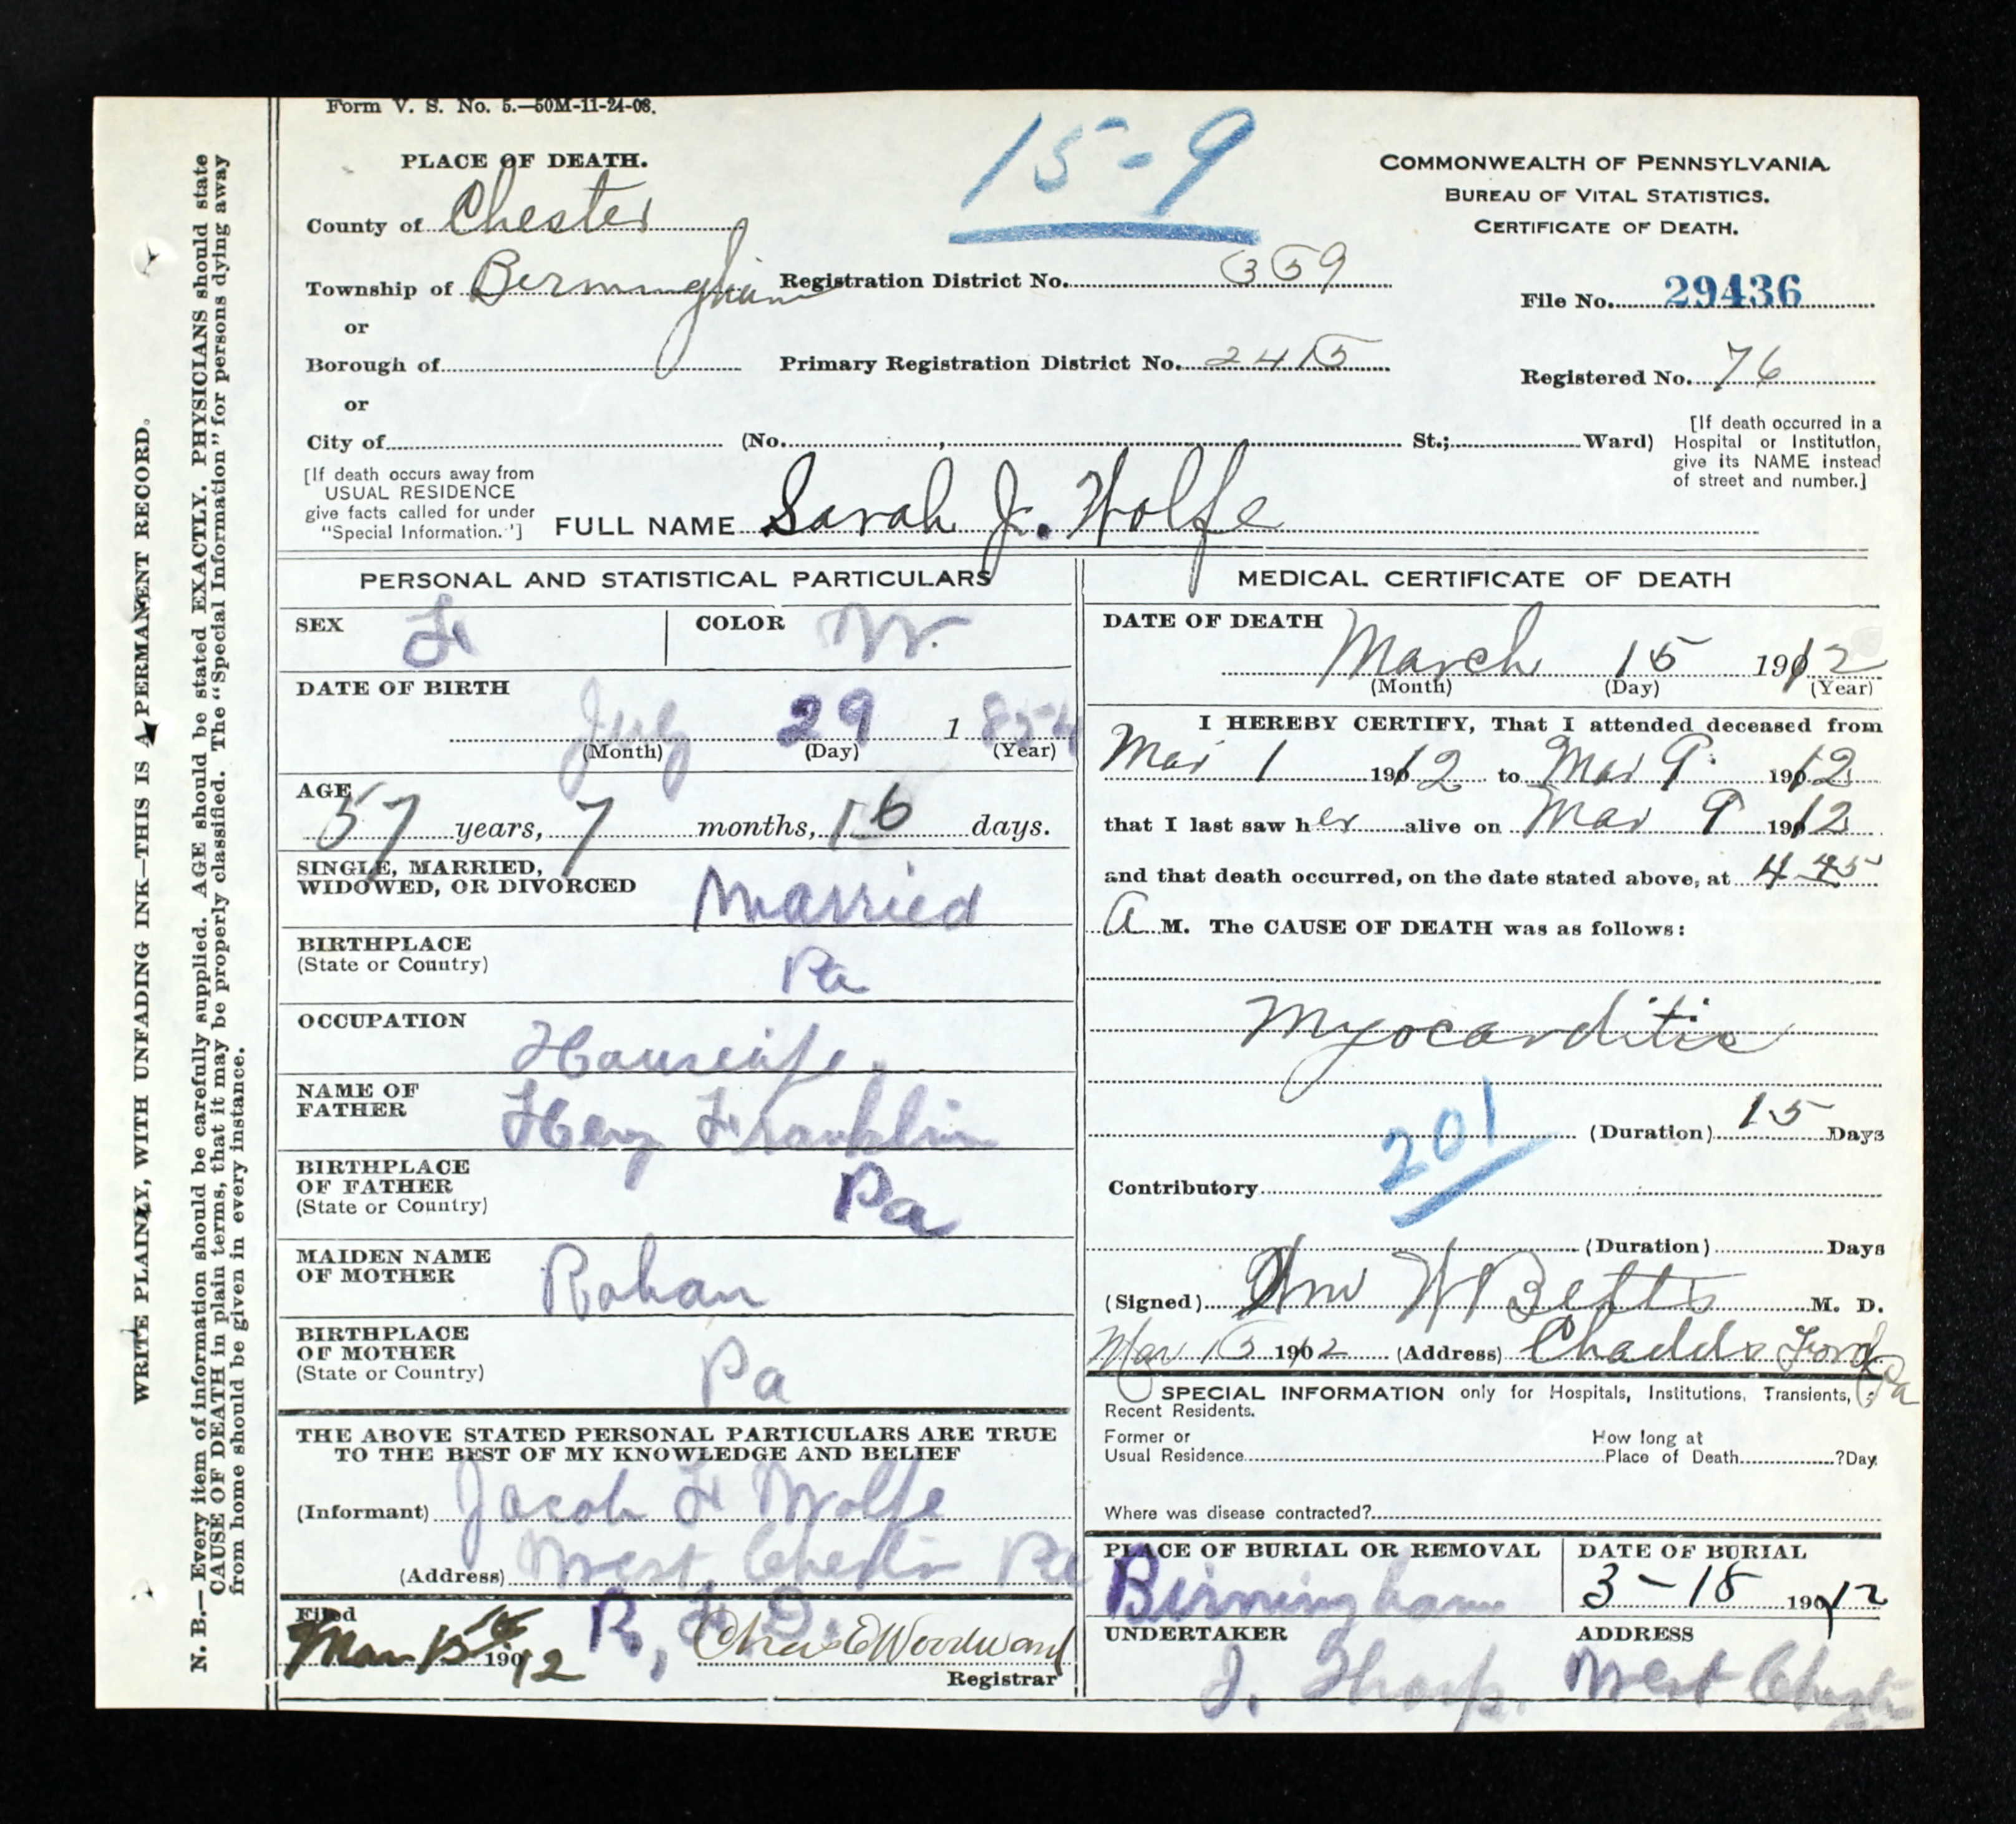 Form V. S. No. 5.—50M-11-24-08.
15-9
PLACE OF DEATH.
County of Chester
Township of Bermingham
or
Borough of
or
City of (No. , St.; Ward)
Registration District No. 359
Primary Registration District No. 2415
COMMONWEALTH OF PENNSYLVANIA
BUREAU OF VITAL STATISTICS.
CERTIFICATE OF DEATH.
File No. 29436
Registered No. 76
[If death occurred in a
Hospital or Institution,
give its NAME instead
of street and number.]
[If death occurs away from
USUAL RESIDENCE
give facts called for under
"Special Information."]
FULL NAME Sarah J. Wolfe
PERSONAL AND STATISTICAL PARTICULARS
SEX F
COLOR W.
DATE OF BIRTH
July 29 1 854
(Month) (Day) (Year)
AGE
57 years, 7 months, 16 days.
SINGLE, MARRIED,
WIDOWED, OR DIVORCED
Married
BIRTHPLACE
(State or Country)
Pa
OCCUPATION
Housewife.
NAME OF
FATHER
Franklin
BIRTHPLACE
OF FATHER
(State or Country)
Pa
MAIDEN NAME
OF MOTHER
Rohan
BIRTHPLACE
OF MOTHER
(State or Country)
Pa
THE ABOVE STATED PERSONAL PARTICULARS ARE TRUE
TO THE BEST OF MY KNOWLEDGE AND BELIEF
(Informant) Jacob F Wolfe
(Address) West Chester Pa
R, F. D.
Filed
Mar 15 190 12
Chas E Woodward
Registrar
MEDICAL CERTIFICATE OF DEATH
DATE OF DEATH
March 15 1912
(Month) (Day) (Year)
I HEREBY CERTIFY, That I attended deceased from
Mar 1 1912 to Mar 9 1912
that I last saw her alive on Mar 9 1912
and that death occurred, on the date stated above, at 4 45
A M. The CAUSE OF DEATH was as follows:
Myocarditis
201
(Duration) 15 Days
Contributory
(Duration) Days
(Signed) Wm W Betts M. D.
Mar 15 1912 (Address) Chadds Ford Pa
SPECIAL INFORMATION only for Hospitals, Institutions, Transients,
Recent Residents.
Former or
Usual Residence
How long at
Place of Death ?Day
Where was disease contracted?
PLACE OF BURIAL OR REMOVAL
Birmingham
DATE OF BURIAL
3-18 1912
UNDERTAKER
J. Thorp.
ADDRESS
West Chester
WRITE PLAINLY, WITH UNFADING INK—THIS IS A PERMANENT RECORD.
N. B.—Every item of information should be carefully supplied. AGE should be stated EXACTLY. PHYSICIANS should state
CAUSE OF DEATH in plain terms, that it may be properly classified. The "Special Information" for persons dying away
from home should be given in every instance.